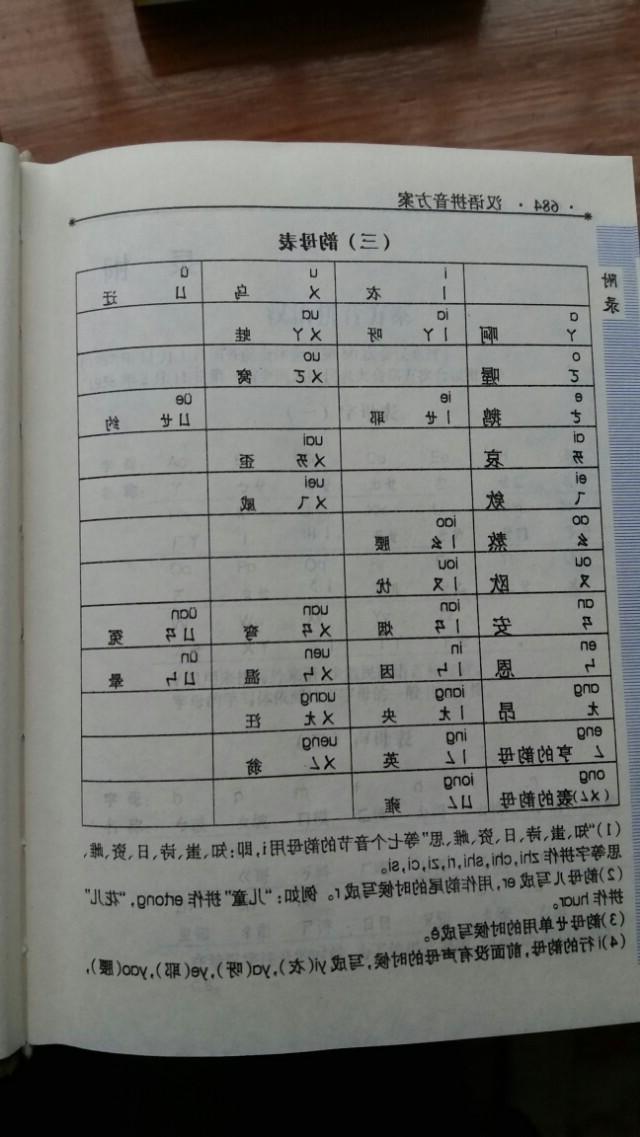 · 684 · 汉语拼音方案
附录
(三)韵母表
i u ü
ㄧ 衣 ㄨ 乌 ㄩ 迂
a ia ua
ㄚ 啊 ㄧㄚ 呀 ㄨㄚ 蛙
o uo
ㄛ 喔 ㄨㄛ 窝
e ie üe
ㄜ 鹅 ㄧㄝ 耶 ㄩㄝ 约
ai uai
ㄞ 哀 ㄨㄞ 歪
ei uei
ㄟ 欸 ㄨㄟ 威
ao iao
ㄠ 熬 ㄧㄠ 腰
ou iou
ㄡ 欧 ㄧㄡ 忧
an ian uan üan
ㄢ 安 ㄧㄢ 烟 ㄨㄢ 弯 ㄩㄢ 冤
en in uen ün
ㄣ 恩 ㄧㄣ 因 ㄨㄣ 温 ㄩㄣ 晕
ang iang uang
ㄤ 昂 ㄧㄤ 央 ㄨㄤ 汪
eng ing ueng
ㄥ 亨的韵母 ㄧㄥ 英 ㄨㄥ 翁
ong iong
(ㄨㄥ)轰的韵母 ㄩㄥ 雍
(1)“知、蚩、诗、日、资、雌、思”等七个音节的韵母用i,即:知、蚩、诗、日、资、雌、
思等字拼作zhi,chi,shi,ri,zi,ci,si。
(2)韵母儿写成er,用作韵尾的时候写成r。例如:“儿童”拼作ertong,“花儿”
拼作huar。
(3)韵母ㄝ单用的时候写成ê。
(4)i行的韵母,前面没有声母的时候,写成yi(衣),ya(呀),ye(耶),yao(腰),